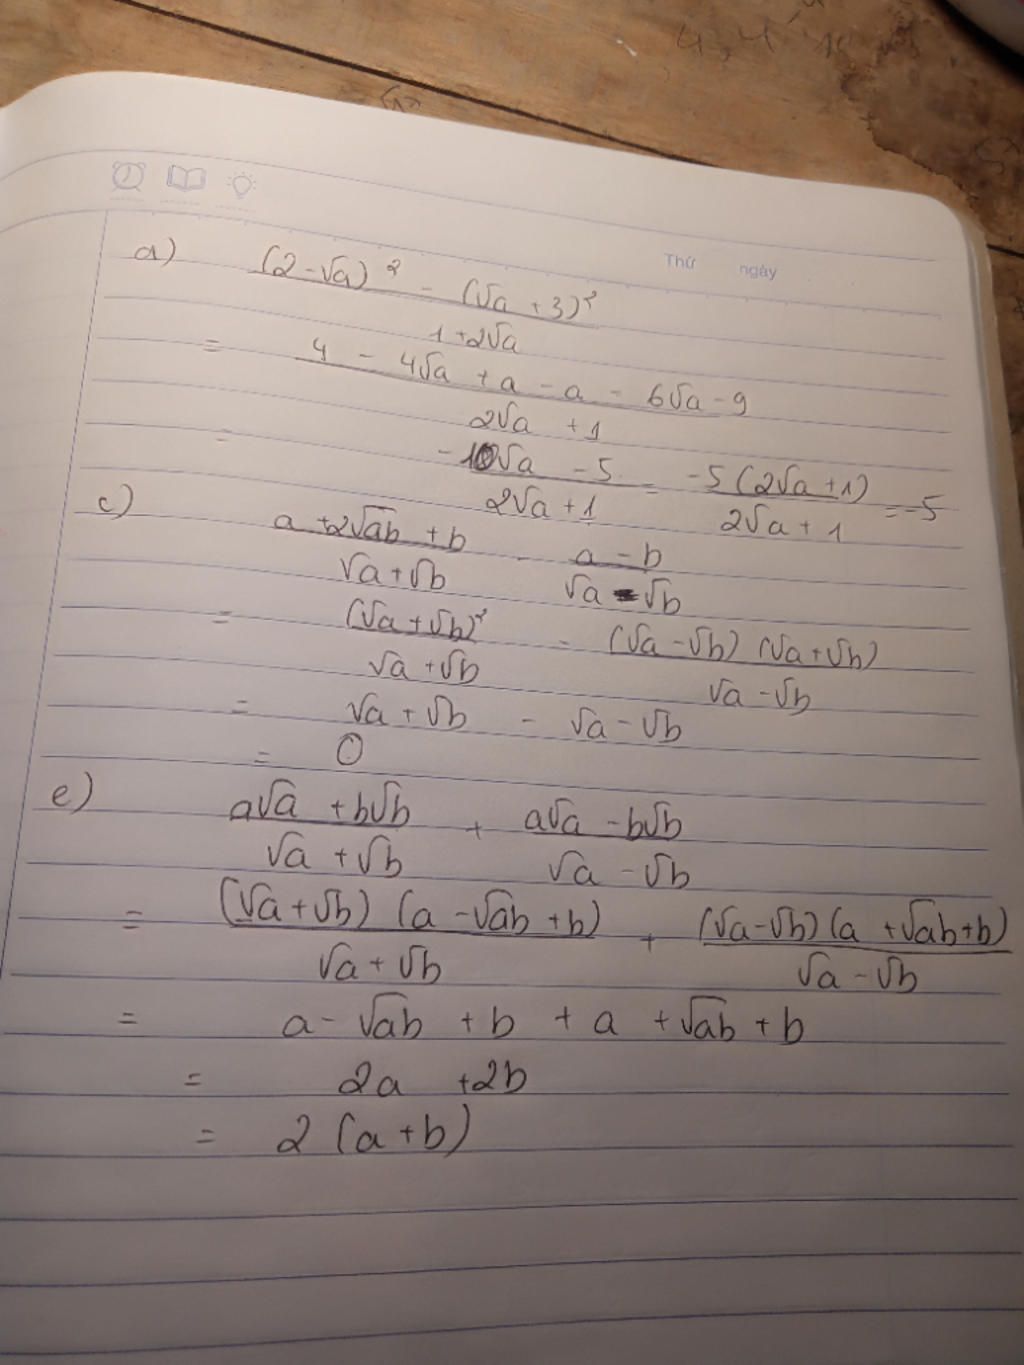 Thứ ngày
a) (2 - √a)² - (√a + 3)²
1 + 2√a
= 4 - 4√a + a - a - 6√a - 9
2√a + 1
= -10√a - 5 = -5(2√a + 1) = -5
2√a + 1 2√a + 1
c) a + 2√ab + b - a - b
√a + √b √a - √b
= (√a + √b)² - (√a - √b) (√a + √b)
√a + √b √a - √b
= √a + √b - √a - √b
= 0
e) a√a + b√b + a√a - b√b
√a + √b √a - √b
= (√a + √b) (a - √ab + b) + (√a - √b) (a + √ab + b)
√a + √b √a - √b
= a - √ab + b + a + √ab + b
= 2a + 2b
= 2 (a + b)